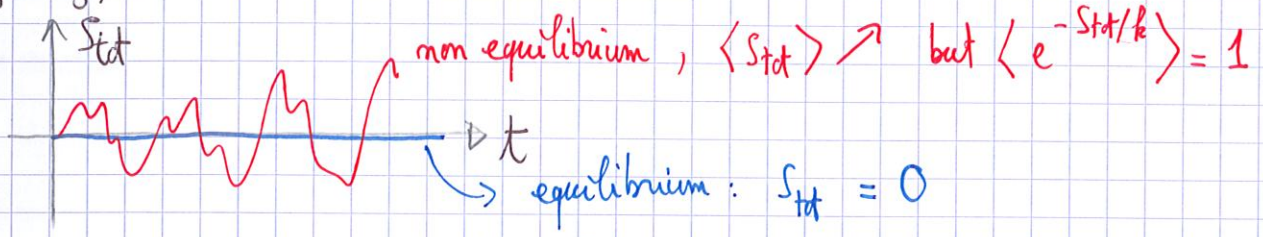 S_tot non equilibrium, ⟨S_tot⟩ ↗ but ⟨e^{-S_tot/k}⟩ = 1
t
equilibrium: S_tot = 0